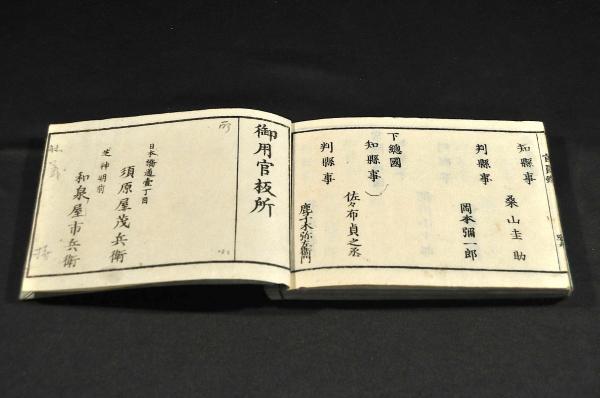 知縣事
桑山圭助
判縣事
岡本彌一郎
下總國
知縣事
佐々布貞之丞
判縣事
御用官板所
日本橋通壹丁目
須原屋茂兵衛
芝神明前
和泉屋市兵衛